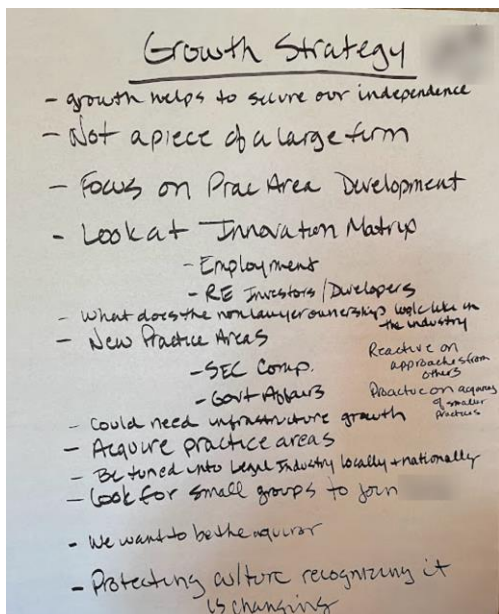 Growth Strategy
- growth helps to secure our independence
- Not a piece of a large firm
- Focus on Prac Area Development
- Look at Innovation Matrix
- Employment
- RE Investors/Developers
- What does the nonlawyer ownership look like in
the industry
- New Practice Areas
- SEC Comp.
- Govt Affairs
Reactive on
approaches from
others
Proactive on acquiring
of smaller
practices
- Could need infrastructure growth
- Acquire practice areas
- Be tuned into Legal Industry locally + nationally
- Look for small groups to join
- We want to be the aquiror
- Protecting culture recognizing it
is changing